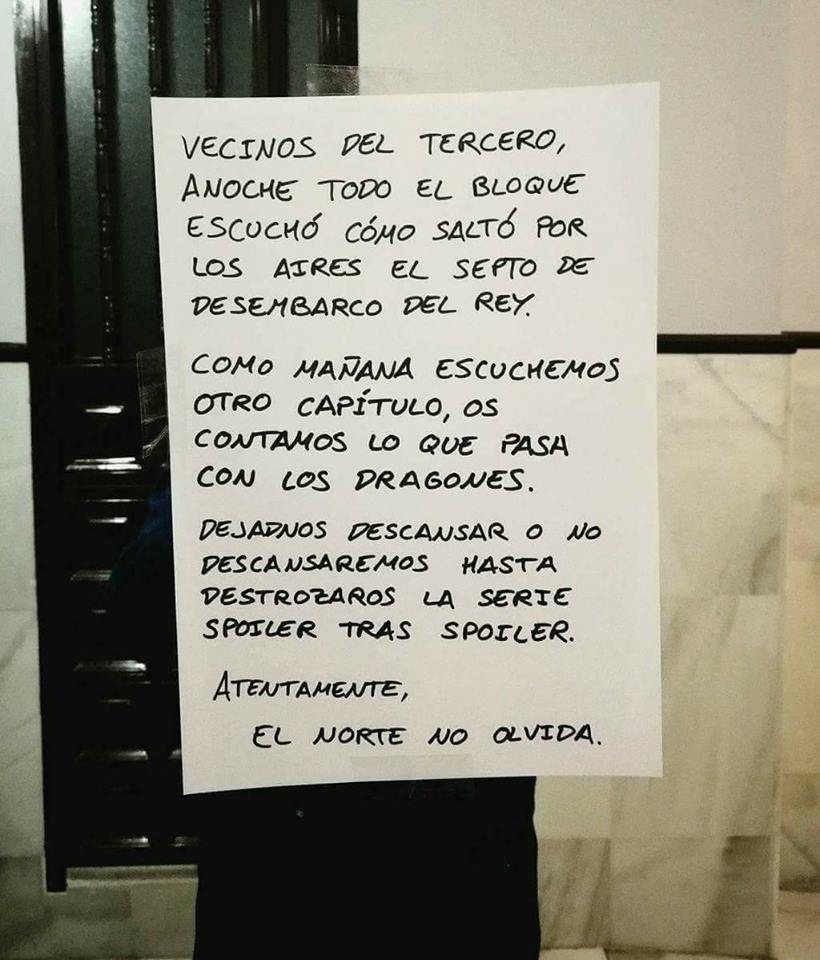 VECINOS DEL TERCERO,
ANOCHE TODO EL BLOQUE
ESCUCHÓ CÓMO SALTÓ POR
LOS AIRES EL SEPTO DE
DESEMBARCO DEL REY.
COMO MAÑANA ESCUCHEMOS
OTRO CAPÍTULO, OS
CONTAMOS LO QUE PASA
CON LOS DRAGONES.
DEJADNOS DESCANSAR O NO
DESCANSAREMOS HASTA
DESTROZAROS LA SERIE
SPOILER TRAS SPOILER.
ATENTAMENTE,
EL NORTE NO OLVIDA.